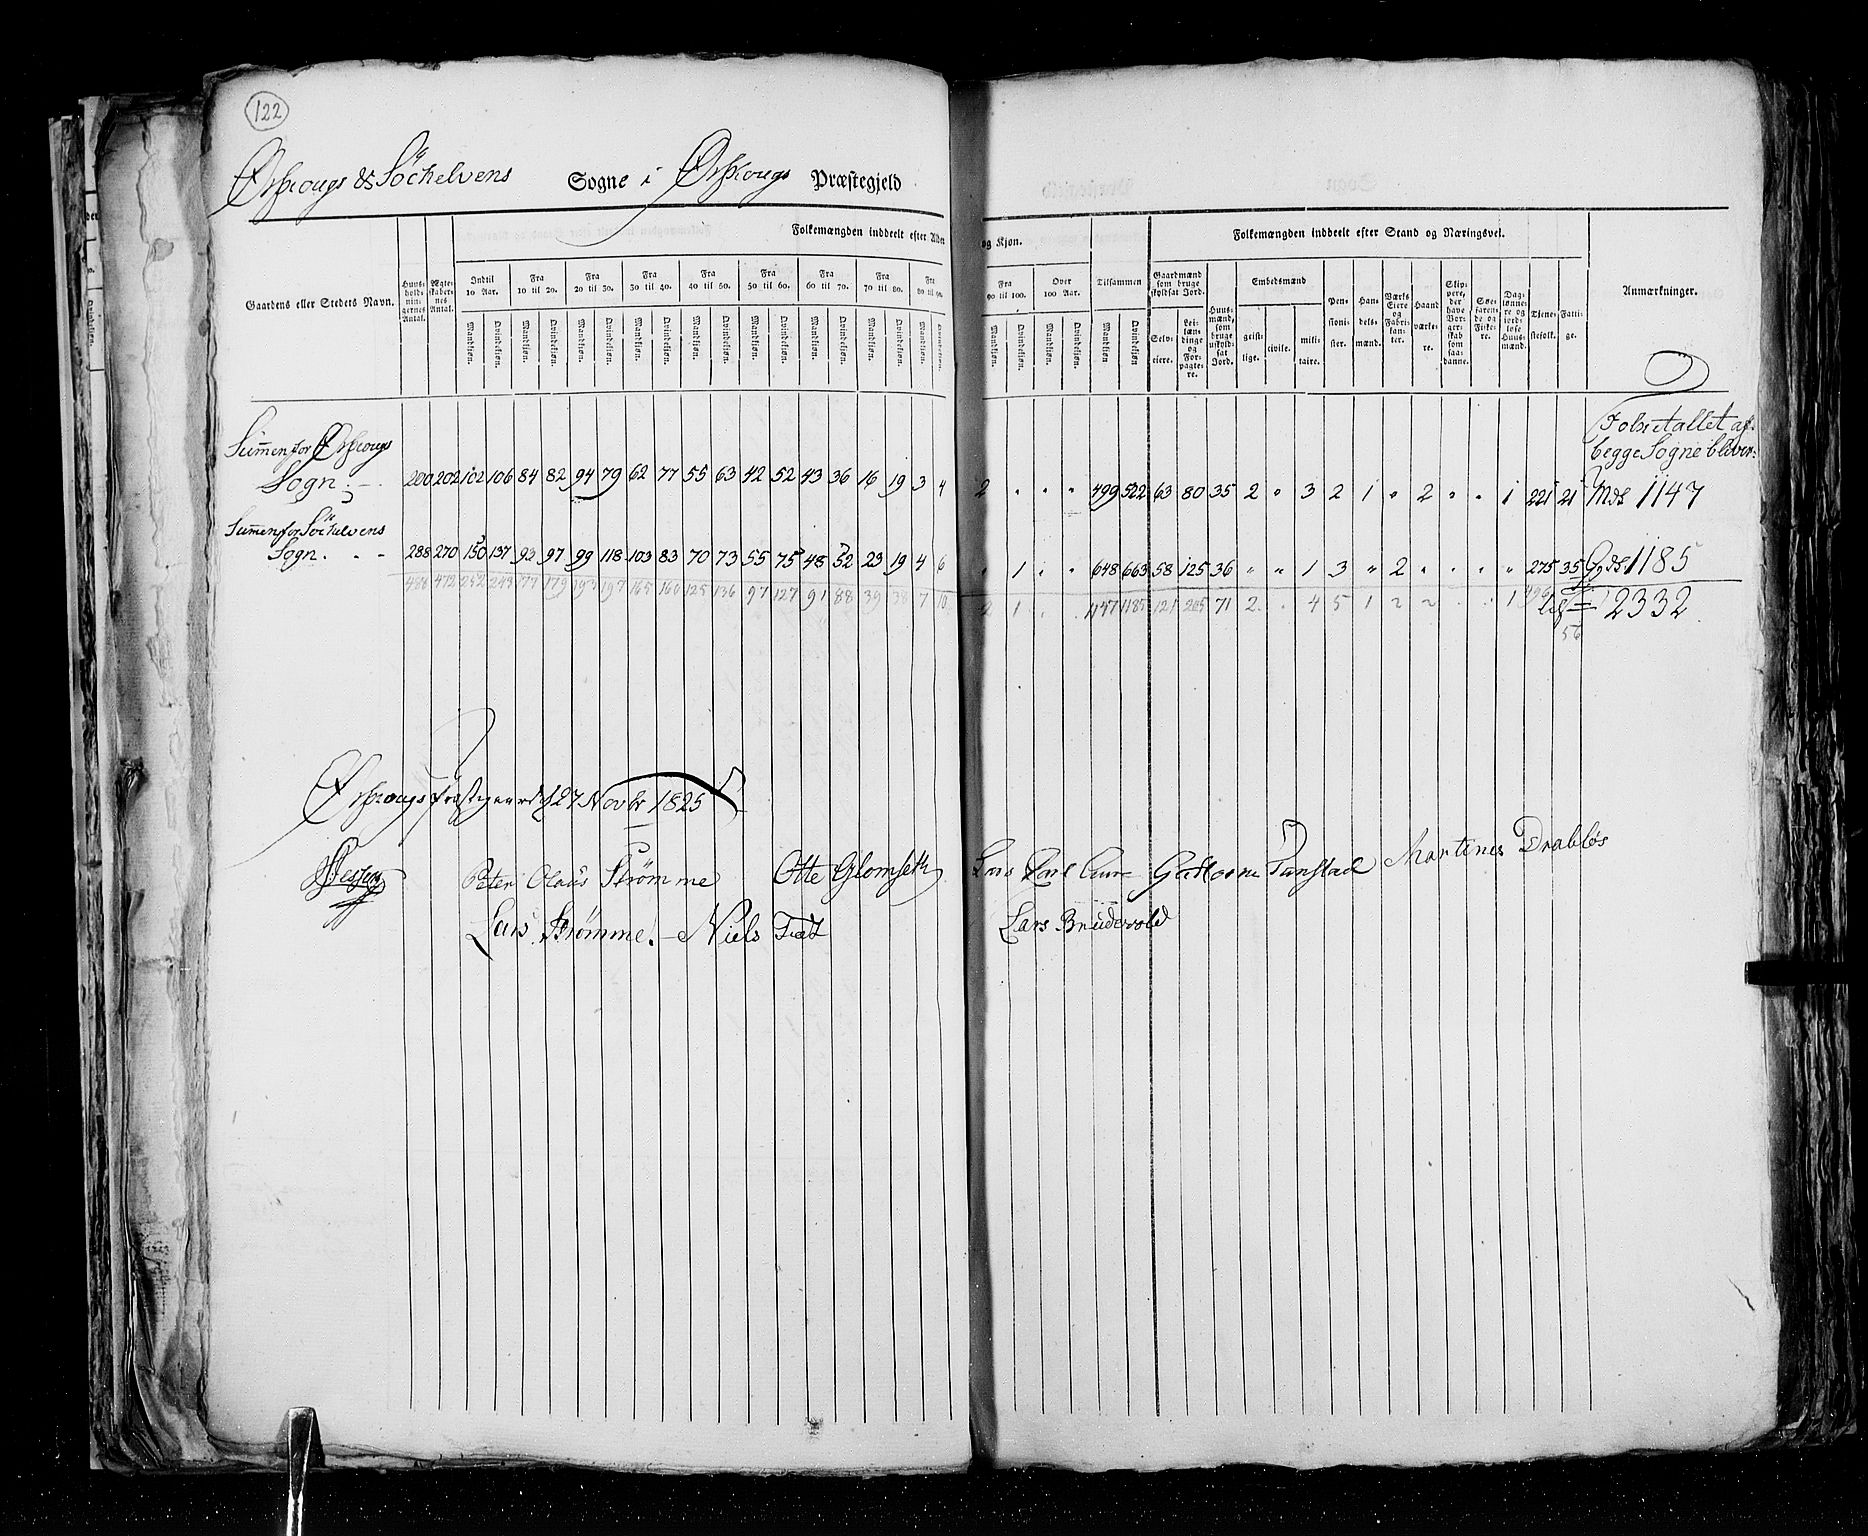 122
Ørskougs & Söchelvens Sogne i Ørskougs Præstegjeld
Folkemængden inddeelt efter Alder og Kjøn.
Folkemængden inddeelt efter Stand og Næringsvei.
Gaardens eller Stedets Navn.
Huusholdningernes Antal.
Ægteskabernes Antal.
Indtil 10 Aar.
Fra 10 til 20.
Fra 20 til 30.
Fra 30 til 40.
Fra 40 til 50.
Fra 50 til 60.
Fra 60 til 70.
Fra 70 til 80.
Fra 80 til 90.
Fra 90 til 100.
Over 100 Aar.
Tilsammen
Mandkjøn. Qvindekjøn.
Gaardmænd som bruge skyldsat Jord.
Selveiere.
Leilændinge og Forpagtere.
Huusmænd, som bruge uskyldsat Jord.
Embedsmænd
geistlige.
civile.
militaire.
Pensionister.
Handelsmænd.
Værks Eiere og Fabrikanter.
Haandværkere.
Skippere, der have Borgerskab som saadanne.
Søefarende og Fiskere.
Daglønnere og jordløse Huusmænd.
Tjenestefolk.
Fattige.
Anmærkninger.
Summen for Ørskougs
Sogn. 200 202 102 106 84 82 94 79 62 77 55 63 42 52 43 36 16 19 3 4 2 " " " 499 522 63 80 35 2 " 3 2 1 " 2 " " 1 221 21
Folketallet af
begge Sogne bliver:
Mds 1147
Summen for Söchelvens
Sogn. 288 270 150 137 93 97 99 118 103 83 70 73 55 75 48 52 23 19 4 6 " 1 " " 648 663 58 125 36 " " 1 3 " 2 " " " " 275 35 Qvds 1185
488 472 252 243 177 179 193 197 165 160 125 136 97 127 91 88 39 38 7 10 2 1 1147 1185 121 205 71 2 " 4 5 1 2 2 1 496
56
= 2332
Ørskougs Præstegaard d 27 Novbr 1825
Peter Olaus Strømme Otte Glomseth Lars Martines Drabløs
Lars Strømme. Niels Tæt Lars Bruderold